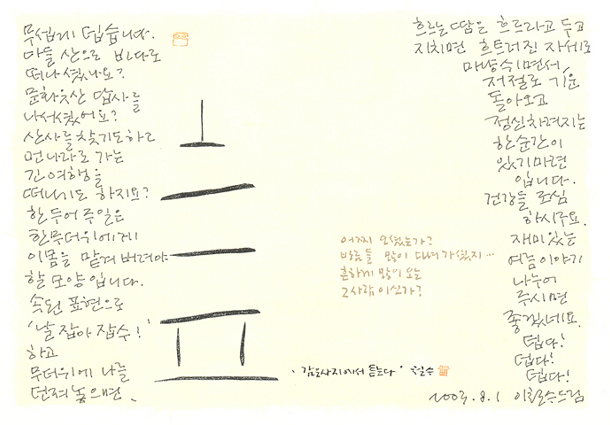 무섭게 덥습니다.
다들 산으로 바다로
떠나셨나요?
문화유산 답사를
나서셨어요?
산사를 찾기도하고
먼나라로 가는
긴여행을
떠나기도 하지요?
한 두어 주일은
한무더위에게
이몸을 맡겨 버려야
할 모양입니다.
속된 표현으로
'날 잡아 잡수!'
하고
무더위에 나를
던져놓으면,
흐르는 땀은 흐르라고 두고
지치면 흐트러진 자세로
매냥쉬면서,
저절로 기운
돌아오고
정신차려지는
한순간이
있기마련
입니다.
건강들 조심
하시구요.
재미있는
여름이야기
나누어
주시면
좋겠네요.
덥다!
덥다!
덥다!
어찌 오셨는가?
바람들 많이 다녀가셨지...
흔하게 많이 오는
그사람이신가?
'감은사지에서 듣는다' 철수
2003.8.1 이철수드림